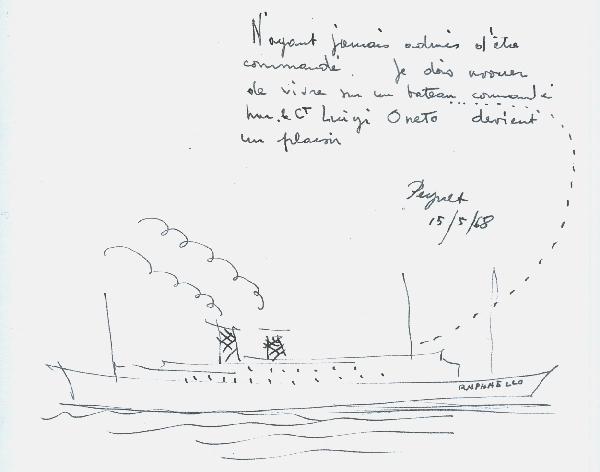 N'ayant jamais admis d'être
commandé. Je dois avouer
de vivre sur un bateau commandé
par le Ct Luigi Oneto devient
un plaisir
15/5/68
RAPHAELLO